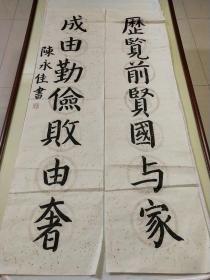 歷賢前賢國与家
成由勤儉敗由奢
陳永佳書